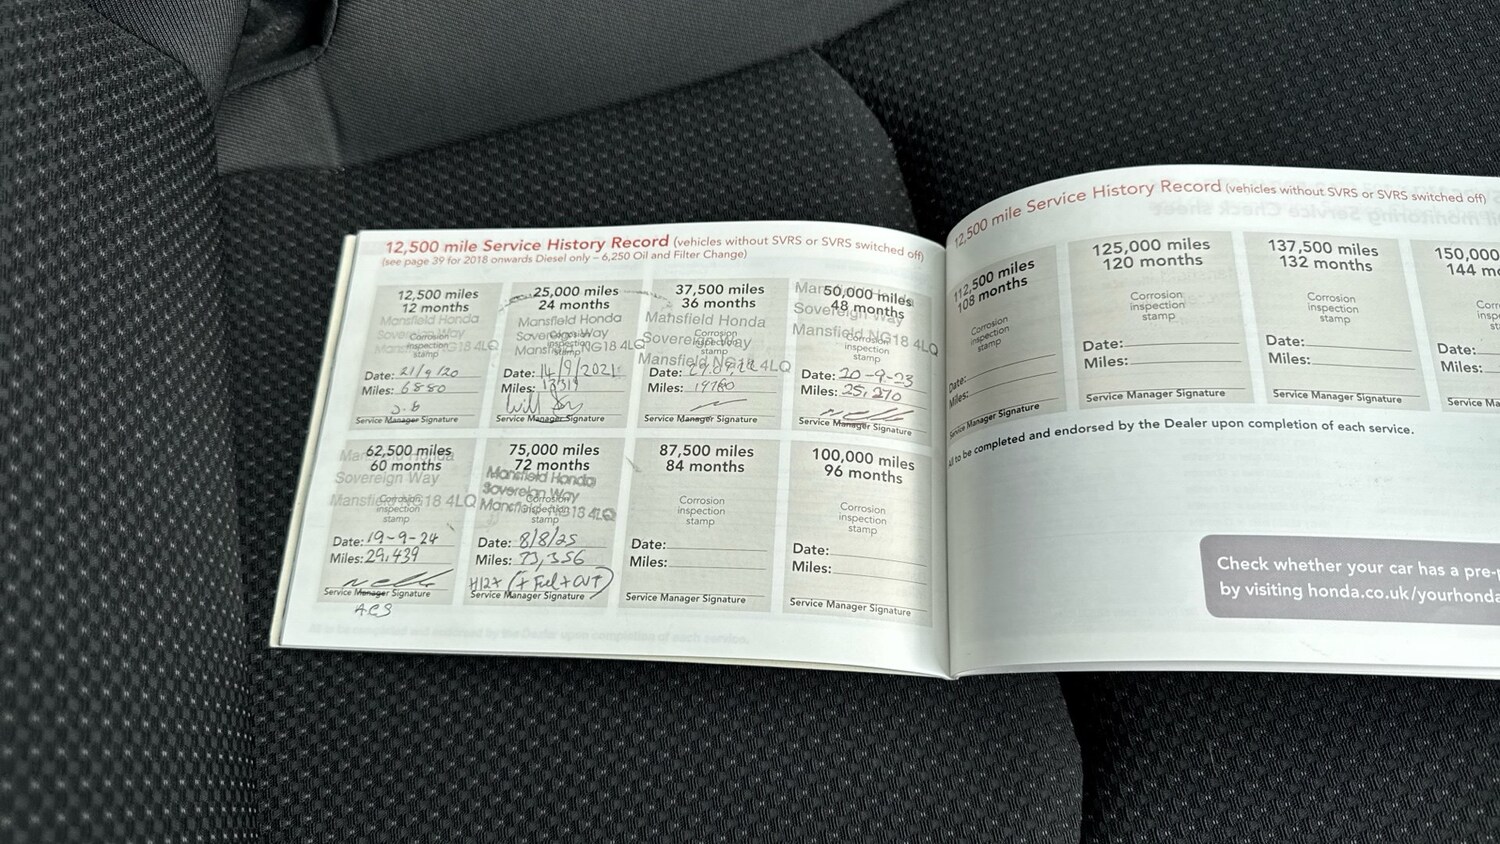 12,500 mile Service History Record (vehicles without SVRS or SVRS switched off)
(see page 39 for 2018 onwards Diesel only – 6,250 Oil and Filter Change)
12,500 miles
12 months
Mansfield Honda
Sovereign Way
Mansfield NG18 4LQ
Corrosion
inspection
stamp
Date: 21/9/20
Miles: 6880
Service Manager Signature
25,000 miles
24 months
Mansfield Honda
Sovereign Way
Mansfield NG18 4LQ
Corrosion
inspection
stamp
Date: 14/9/2021
Miles: 13319
Service Manager Signature
37,500 miles
36 months
Mansfield Honda
Sovereign Way
Mansfield NG18 4LQ
Corrosion
inspection
stamp
Date:
Miles: 19760
Service Manager Signature
50,000 miles
48 months
Mansfield Honda
Sovereign Way
Mansfield NG18 4LQ
Corrosion
inspection
stamp
Date: 20-9-23
Miles: 25,270
Service Manager Signature
62,500 miles
60 months
Mansfield Honda
Sovereign Way
Mansfield NG18 4LQ
Corrosion
inspection
stamp
Date: 19-9-24
Miles: 29,439
Service Manager Signature
75,000 miles
72 months
Mansfield Honda
Sovereign Way
Mansfield NG18 4LQ
Corrosion
inspection
stamp
Date: 8/8/25
Miles: 73,356
Service Manager Signature
87,500 miles
84 months
Corrosion
inspection
stamp
Date:
Miles:
Service Manager Signature
100,000 miles
96 months
Corrosion
inspection
stamp
Date:
Miles:
Service Manager Signature
12,500 mile Service History Record (vehicles without SVRS or SVRS switched off)
112,500 miles
108 months
Corrosion
inspection
stamp
Date:
Miles:
Service Manager Signature
125,000 miles
120 months
Corrosion
inspection
stamp
Date:
Miles:
Service Manager Signature
137,500 miles
132 months
Corrosion
inspection
stamp
Date:
Miles:
Service Manager Signature
150,000
144 mo
Date:
Miles:
Service Ma
All to be completed and endorsed by the Dealer upon completion of each service.
Check whether your car has a pre-
by visiting honda.co.uk/yourhonda